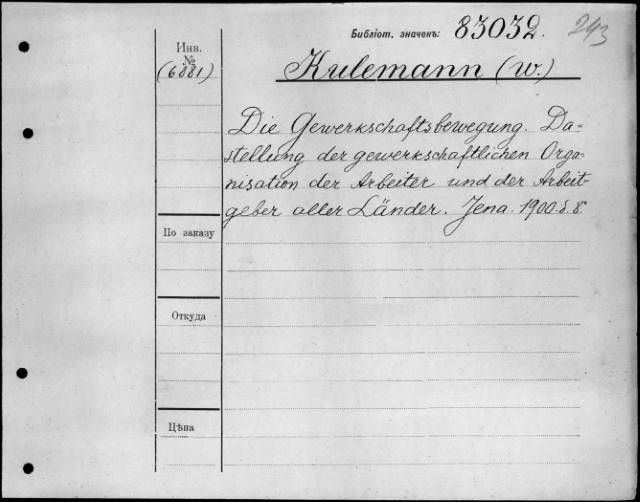 Библіот. значекъ: 83032. 243
Инв.
№
(6881)
Kulemann (W.)
Die Gewerkschaftsbewegung. Da-
stellung der gewerkschaftlichen Orga-
nisation der Arbeiter und der Arbeit-
geber aller Länder. Jena. 1900. 8.
По заказу
Откуда
Цѣна